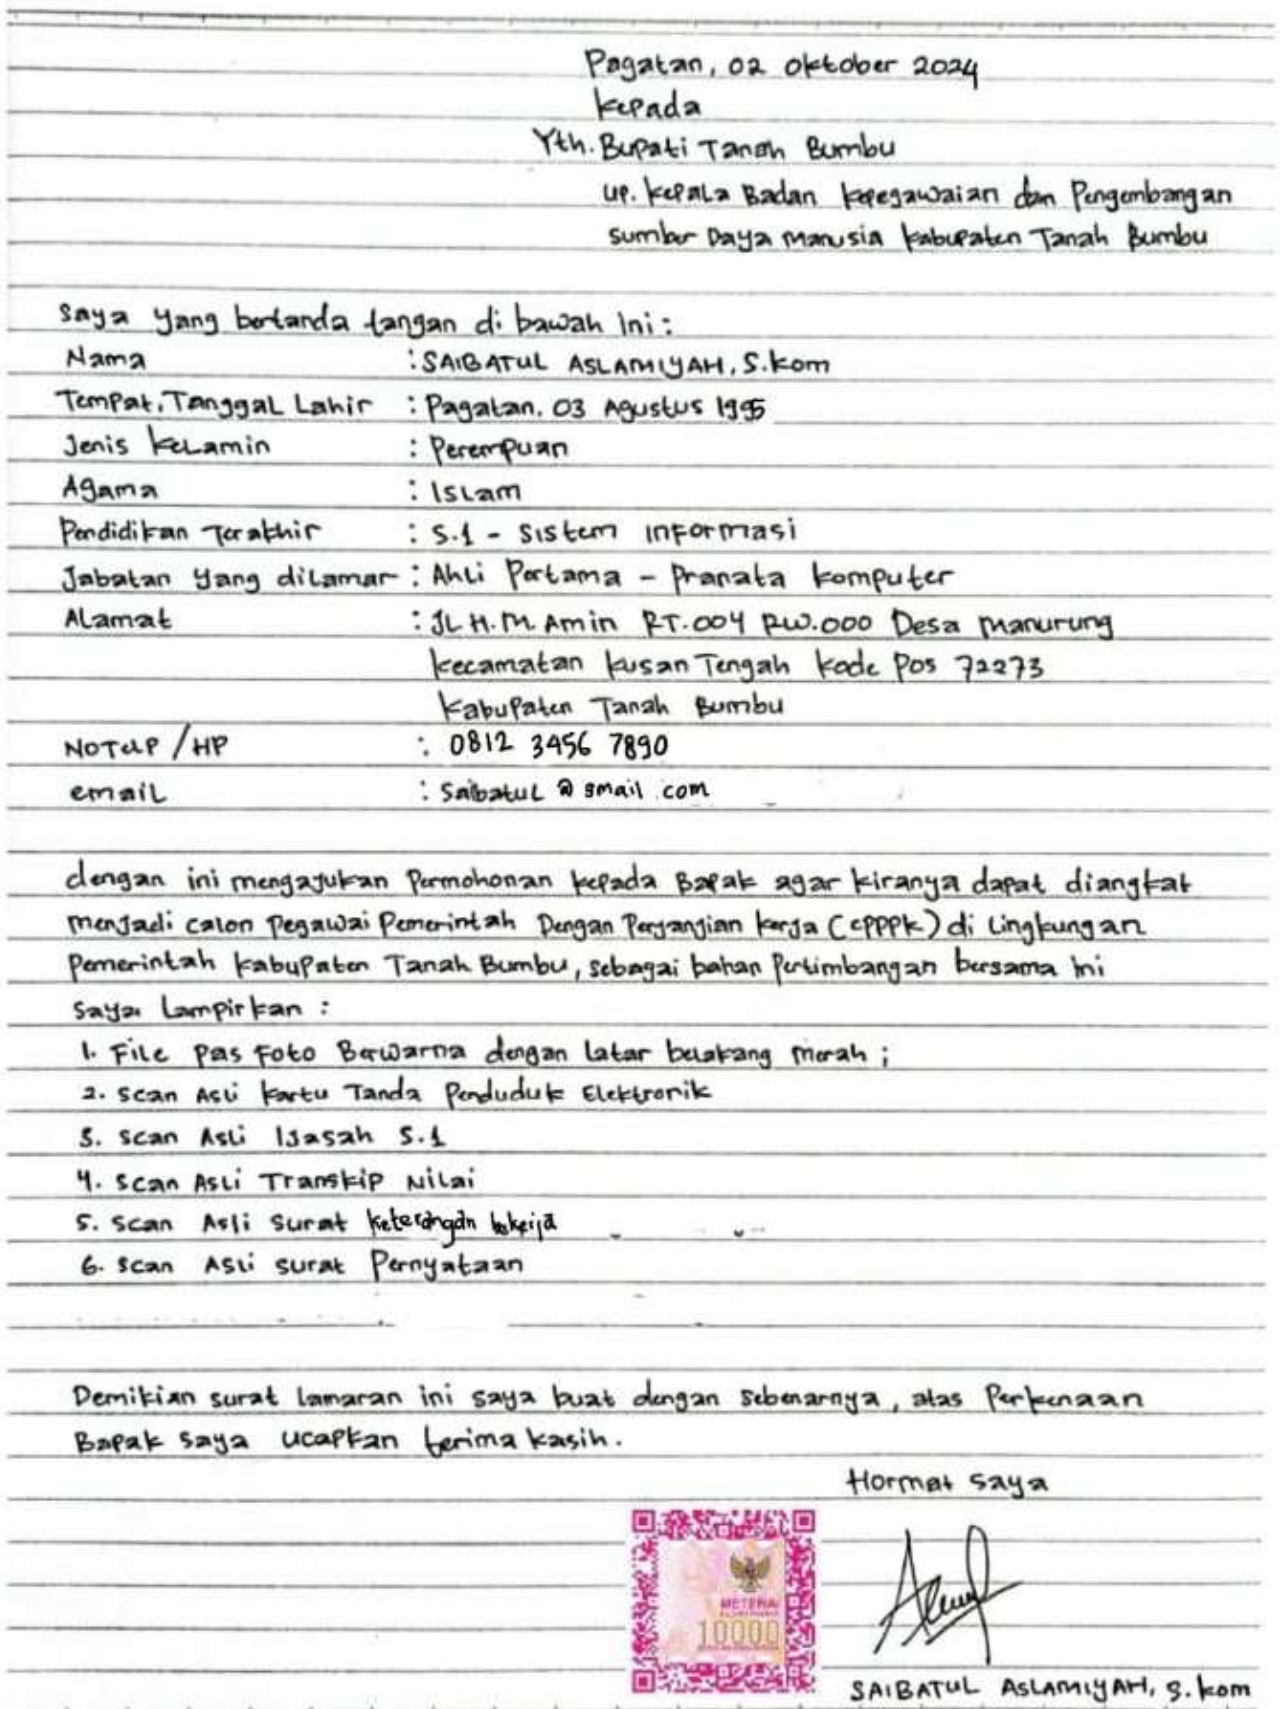 Pagatan, 02 Oktober 2024
Kepada
Yth. Bupati Tanah Bumbu
up. Kepala Badan Kepegawaian dan Pengembangan
Sumber Daya Manusia Kabupaten Tanah Bumbu
Saya yang bertanda tangan di bawah ini :
Nama : SAIBATUL ASLAMIYAH, S.Kom
Tempat, Tanggal Lahir : Pagatan, 03 Agustus 1995
Jenis Kelamin : Perempuan
Agama : Islam
Pendidikan Terakhir : S.1 - Sistem Informasi
Jabatan yang dilamar : Ahli Pertama - Pranata Komputer
Alamat : JL H.M. Amin RT.004 RW.000 Desa Manurung
Kecamatan Kusan Tengah Kode Pos 72273
Kabupaten Tanah Bumbu
NOTelp / HP : 0812 3456 7890
email : Saibatul @ gmail.com
dengan ini mengajukan Permohonan kepada Bapak agar kiranya dapat diangkat
menjadi Calon Pegawai Pemerintah Dengan Perjanjian Kerja (CPPPK) di Lingkungan
Pemerintah Kabupaten Tanah Bumbu, sebagai bahan Pertimbangan bersama ini
saya Lampirkan :
1. File Pas Foto Berwarna dengan latar belakang merah ;
2. Scan Asli Kartu Tanda Penduduk Elektronik
3. Scan Asli Ijasah S.1
4. Scan Asli Transkip Nilai
5. Scan Asli Surat Keterangan bekerja
6. Scan Asli Surat Pernyataan
Demikian surat lamaran ini saya buat dengan sebenarnya, atas Perkenaan
Bapak saya ucapkan terima kasih.
Hormat saya
METERAI
10000
SAIBATUL ASLAMIYAH, S.Kom